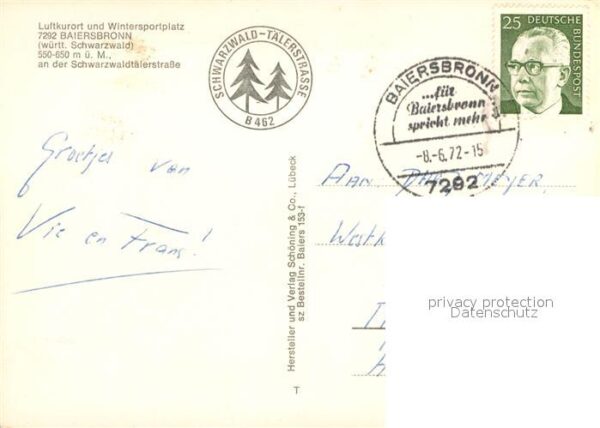 Luftkurort und Wintersportplatz
7292 BAIERSBRONN
(württ. Schwarzwald)
550-650 m ü. M.,
an der Schwarzwaldtälerstraße
SCHWARZWALD-TÄLERSTRASSE
B 462
BAIERSBRONN
...für
Baiersbronn
spricht mehr
-8.-6.72-15
7292
25 DEUTSCHE
BUNDESPOST
Groetjes van
Vic en Frans!
Hersteller und Verlag Schöning & Co., Lübeck
sz Bestellnr. Baiers 153-f
T
AAN MEYER,
privacy protection
Datenschutz